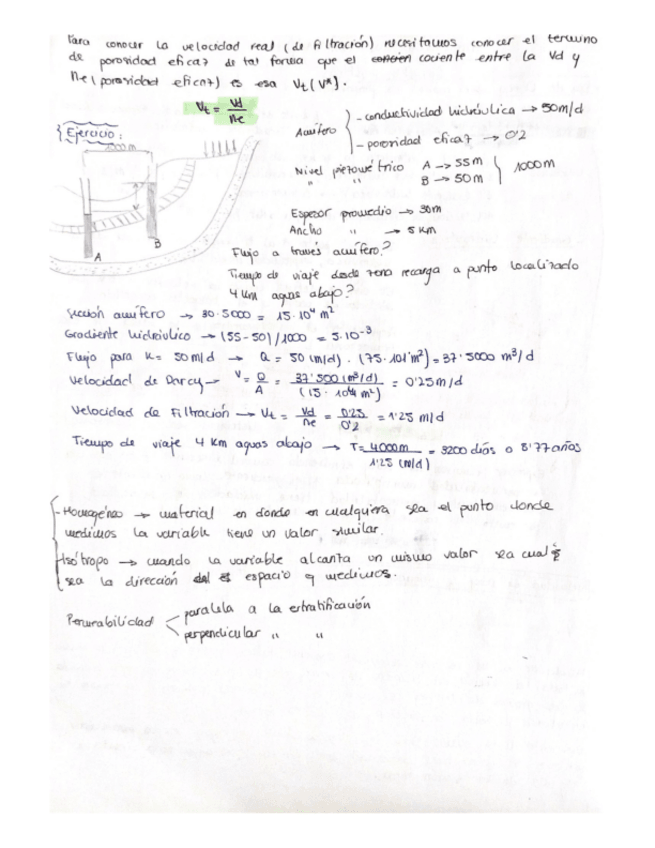 Para conocer la velocidad real (de filtración) necesitamos conocer el termino
de porosidad eficaz de tal forma que el cociente entre la Vd y
ne (porosidad eficaz) es esa Vt (V*).
Vt = Vd / ne
Ejercicio:
1000 m
A
B
Acuífero
- conductividad hidráulica → 50 m/d
- porosidad eficaz → 0'2
Nivel piezométrico A → 55 m
" " B → 50 m
1000 m
Espesor promedio → 30 m
Ancho " → 5 km
Flujo a través acuífero?
Tiempo de viaje desde zona recarga a punto localizado
4 km aguas abajo?
Sección acuífero → 30·5000 = 15·10⁴ m²
Gradiente hidráulico → (55-50)/1000 = 5·10⁻³
Flujo para K = 50 m/d → Q = 50 (m/d) · (75·10¹ m²) = 37'5000 m³/d
Velocidad de Darcy → V = Q/A = 37'500 (m³/d) / (15·10⁴ m²) = 0'25 m/d
Velocidad de Filtración → Vt = Vd/ne = 0'25/0'2 = 1'25 m/d
Tiempo de viaje 4 km aguas abajo → T = 4000 m / 1'25 (m/d) = 3200 días o 8'77 años
- Homogéneo → material en donde en cualquiera sea el punto donde
medimos la variable tiene un valor similar.
- Isótropo → cuando la variable alcanza un mismo valor sea cual
sea la dirección espacio q medimos.
Permeabilidad
paralela a la estratificación
perpendicular " "